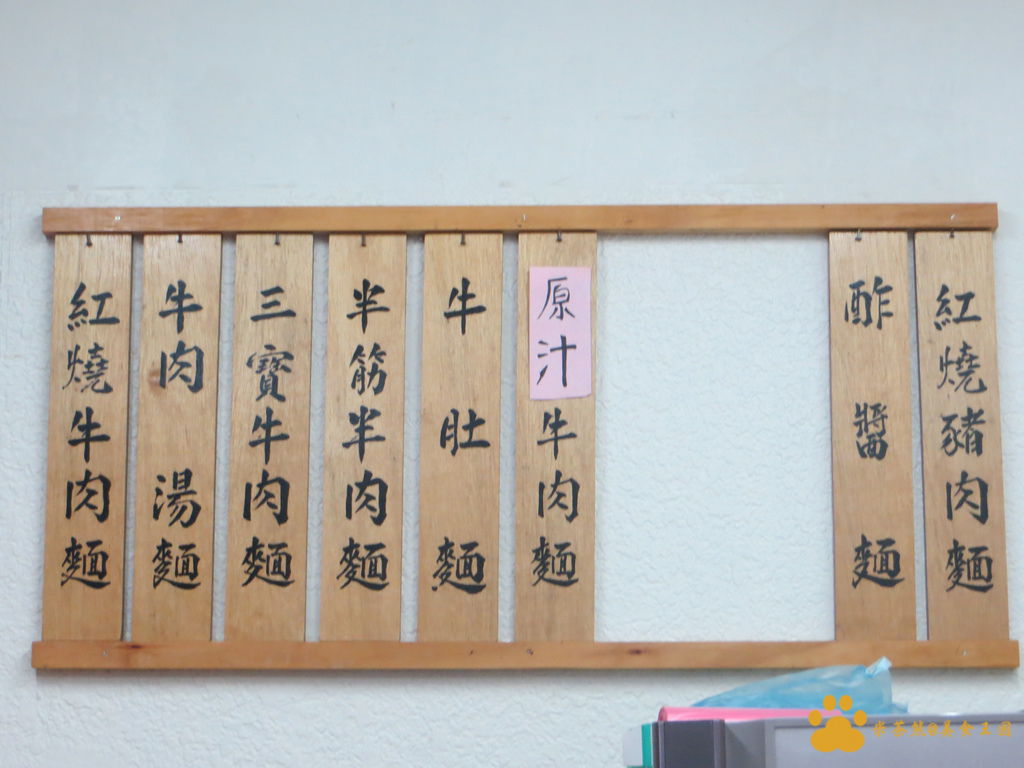 紅燒豬肉麵
酢醬麵
原汁牛肉麵
牛肚麵
半筋半肉麵
三寶牛肉麵
牛肉湯麵
紅燒牛肉麵